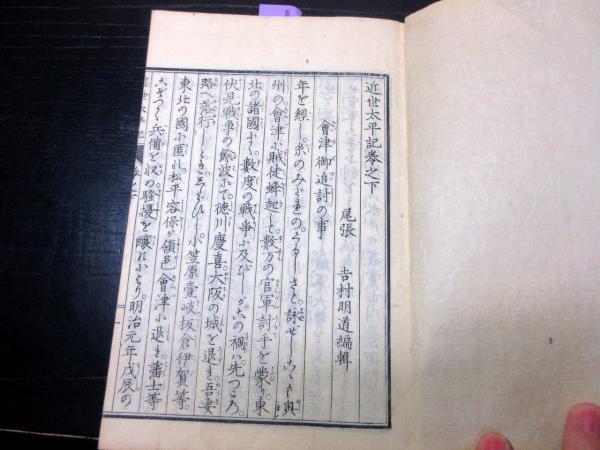 近世太平記巻之下
尾張 吉村明道編輯
會津御追討の事
年を經し糸のみだれのくるしさと詠ぜしこゝも奥
州の會津に賊徒蜂起して數万の官軍討手を蒙り東
北の諸國にて數度の戦争に及びしが其の禍ハ先つころ
伏見戦争の餘波にて徳川慶喜大阪の城を退き吾妻
路へ落行しときにしたがひし小笠原壹岐板倉伊賀等
東北の國に匿れ松平容保が領邑會津に退き藩士等
兵備を収め騒擾を醸せにより明治元年戊辰の